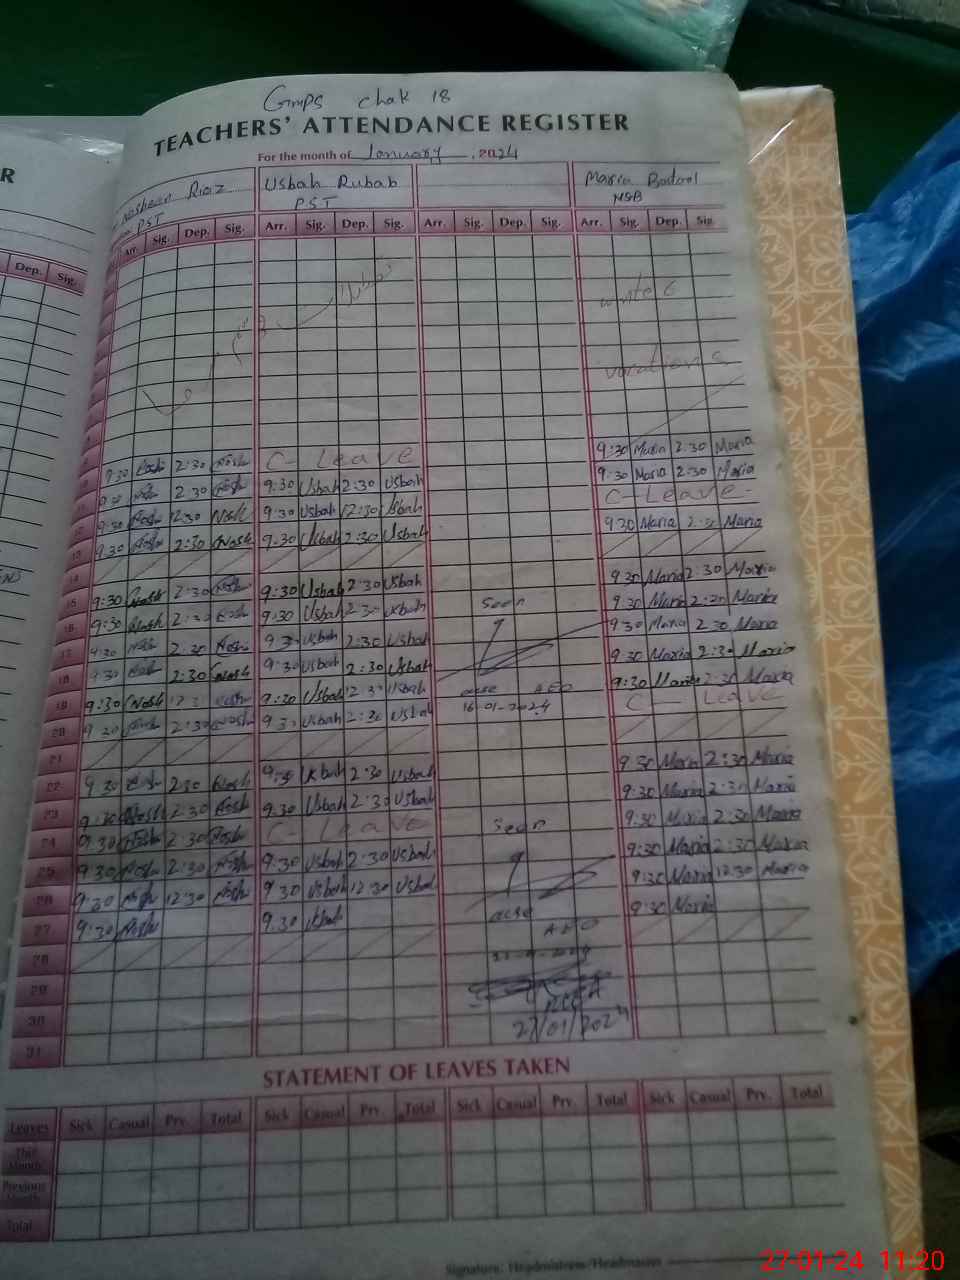 GMPS chak 18
TEACHERS' ATTENDANCE REGISTER
For the month of January, 2024
R
Noshean Riaz
PST
Usbah Rubab
PST
Maria Batool
NSB
Dep. Sig.
Arr. Sig. Dep. Sig. Arr. Sig. Dep. Sig. Arr. Sig. Dep. Sig. Arr. Sig. Dep. Sig.
winter
vacations
9:30 2:30 C- Leave 9:30 Maria 2:30 Maria
9:30 2:30 9:30 Usbah 2:30 Usbah 9:30 Maria 2:30 Maria
9:30 12:30 Nosh 9:30 Usbah 12:30 Usbah C-Leave-
9:30 2:30 Nosh 9:30 Usbah 2:30 Usbah 9:30 Maria 2:30 Maria
13
14
15 9:30 Nosh 2:30 Nosh 9:30 Usbah 2:30 Usbah 9:30 Maria 2:30 Maria
16 9:30 Nosh 2:30 9:30 Usbah 2:30 Usbah Seen 9:30 Maria 2:30 Maria
17 9:30 Nosh 2:30 Nosh 9:30 Usbah 2:30 Usbah 9:30 Maria 2:30 Maria
18 9:30 Nosh 2:30 Nosh 9:30 Usbah 2:30 Usbah 9:30 Maria 2:30 Maria
19 9:30 Nosh 9:30 Usbah 2:30 Usbah AEO 9:30 Maria 2:30 Maria
20 9:30 Nosh 2:30 Nosh 9:30 Usbah 2:30 Usbah 16-01-2024 C- Leave
21
22 9:30 Nosh 2:30 Nosh 9:30 Usbah 2:30 Usbah 9:30 Maria 2:30 Maria
23 9:30 Nosh 2:30 Nosh 9:30 Usbah 2:30 Usbah 9:30 Maria 2:30 Maria
24 9:30 Nosh 2:30 Nosh C- Leave Seen 9:30 Maria 2:30 Maria
25 9:30 Nosh 2:30 Nosh 9:30 Usbah 2:30 Usbah 9:30 Maria 2:30 Maria
26 9:30 Nosh 12:30 Nosh 9:30 Usbah 12:30 Usbah 9:30 Maria 12:30 Maria
27 9:30 Nosh 9:30 Usbah 9:30 Maria
AEO
28
29
30
27/01/2024
31
STATEMENT OF LEAVES TAKEN
Leaves Sick Casual Prv. Total Sick Casual Prv. Total Sick Casual Prv. Total Sick Casual Prv. Total
This Month
Previous Month
Total
Signature: Headmistress/Headmaster
27-01-24 11:20